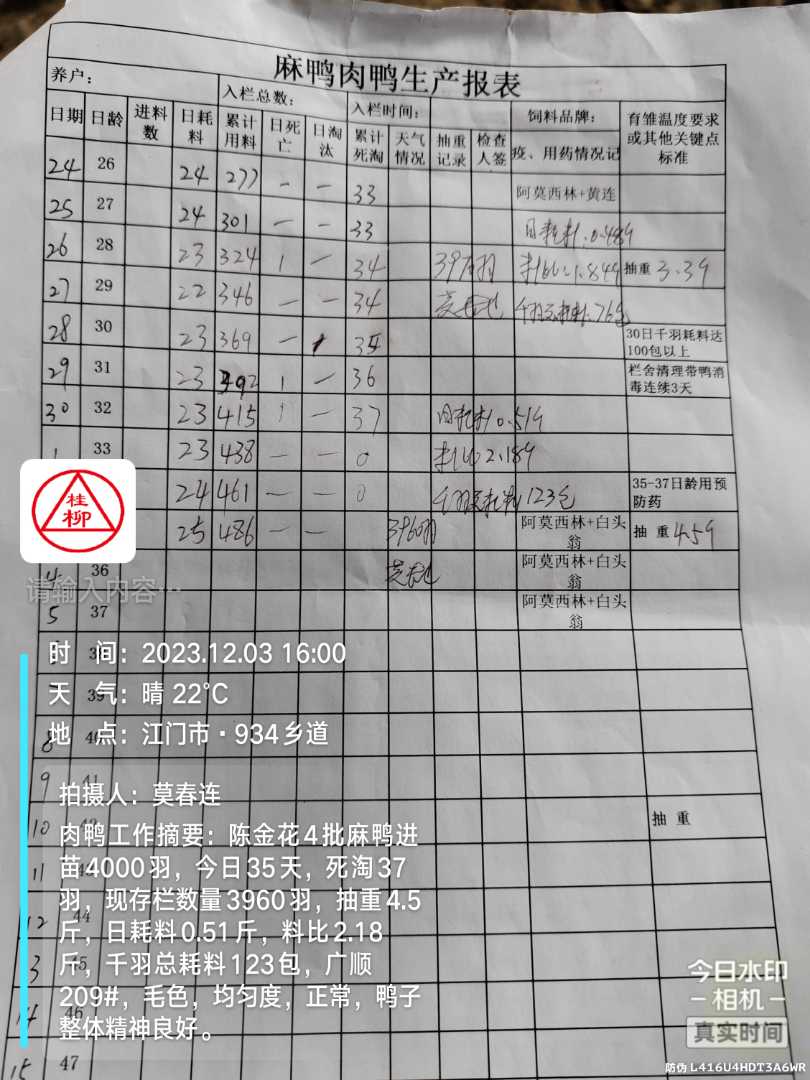 麻鸭肉鸭生产报表
养户： 入栏总数： 入栏时间： 饲料品牌： 育雏温度要求或其他关键点标准
日期 日龄 进料数 日耗料 累计用料 日死亡 日淘汰 累计死淘 天气情况 抽重记录 检查人签 疫、用药情况记
24 26 24 277 — — 33 阿莫西林+黄连
25 27 24 301 — — 33 日耗料0.48斤
26 28 23 324 1 — 34 料比1.84斤 抽重 3.3斤
27 29 22 346 — — 34 莫春连
28 30 23 369 — 1 35 30日千羽耗料达100包以上
29 31 23 392 1 — 36 栏舍清理带鸭消毒连续3天
30 32 23 415 1 — 37 日耗料0.51斤
1 33 23 438 — — 0 料比2.18斤
24 461 — — 0 千羽总耗料123包 35-37日龄用预防药
25 486 — — 3960羽 阿莫西林+白头翁 抽重 4.5斤
4 36 莫春连 阿莫西林+白头翁
5 37 阿莫西林+白头翁
8 40
9 41
10 抽重
11
12 44
3 45
14 46
15 47
桂柳
请输入内容…
时 间：2023.12.03 16:00
天 气：晴 22℃
地 点：江门市·934乡道
拍摄人：莫春连
肉鸭工作摘要：陈金花4批麻鸭进
苗4000羽，今日35天，死淘37
羽，现存栏数量3960羽，抽重4.5
斤，日耗料0.51斤，料比2.18
斤，千羽总耗料123包，广顺
209#，毛色，均匀度，正常，鸭子
整体精神良好。
今日水印
-相机-
真实时间
防伪 L416U4HDT3A6WR